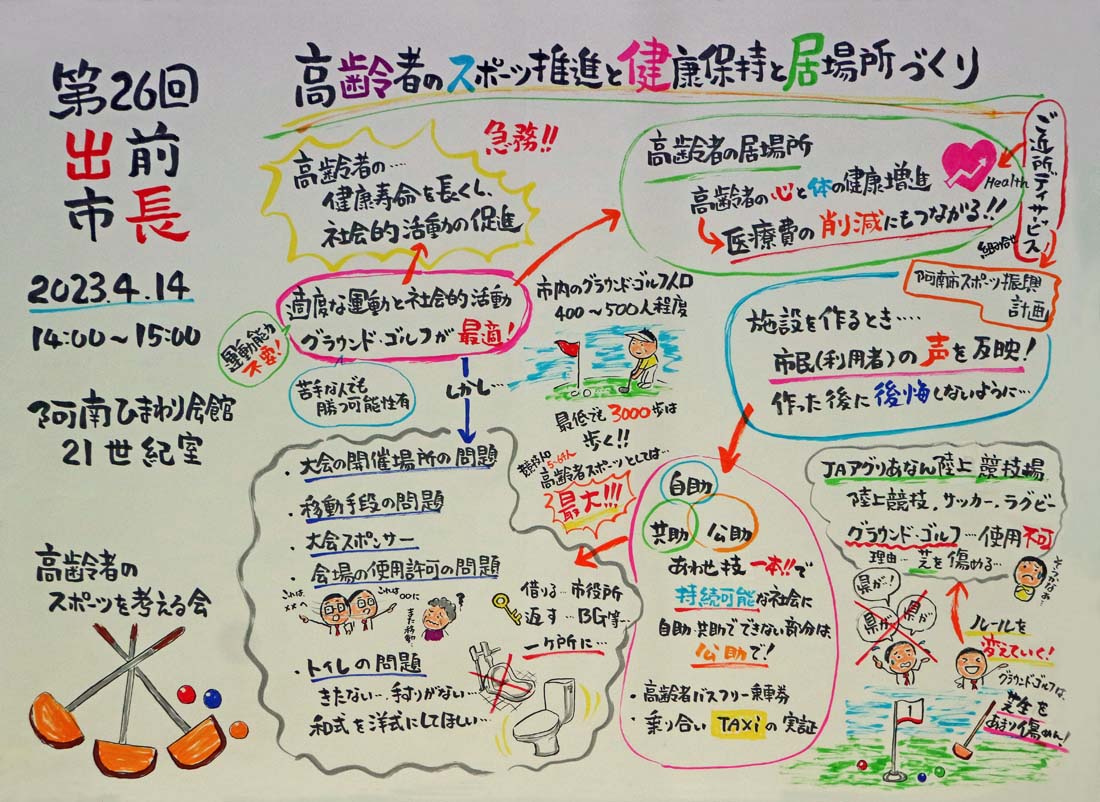 第26回
出前
市長
2023.4.14
14:00～15:00
阿南ひまわり会館
21世紀室
高齢者の
スポーツを考える会
高齢者のスポーツ推進と健康保持と居場所づくり
急務!!
高齢者の…
健康寿命を長くし、
社会的活動の促進
適度な運動と社会的活動
グラウンド・ゴルフが最適!
運動能力
不要!
苦手な人でも
勝つ可能性有
しかし…
市内のグラウンド・ゴルフ人口
400～500人程度
最低でも3000歩は
歩く!!
競技人口
5～6千人
高齢者スポーツとしては…
最大!!!
高齢者の居場所
高齢者の心と体の健康増進
医療費の削減にもつながる!!
Health
ご近所デイサービス
組み合せ
阿南市スポーツ振興
計画
施設を作るとき….
市民(利用者)の声を反映!
作った後に後悔しないように…
・大会の開催場所の問題
・移動手段の問題
・大会スポンサー
・会場の使用許可の問題
これは
××へ
これは○○に
また移動…
?
借りる…市役所
返す…BG等…
一ヶ所に…
・トイレの問題
きたない…手すりがない…
和式を洋式にしてほしい…
自助
共助
公助
あわせ技一本!!で
持続可能な社会に
自助・共助でできない部分は
公助で!
・高齢者バスフリー乗車券
・乗り合いTAXiの実証
JAアグリあなん陸上競技場
陸上競技、サッカー、ラグビー
グラウンド・ゴルフ…使用不可
理由…芝を傷める…
そうかなぁ…
県が!
県が
県が
ルールを
変えていく!
グラウンドゴルフは、
芝生を
あまり傷めん!
1